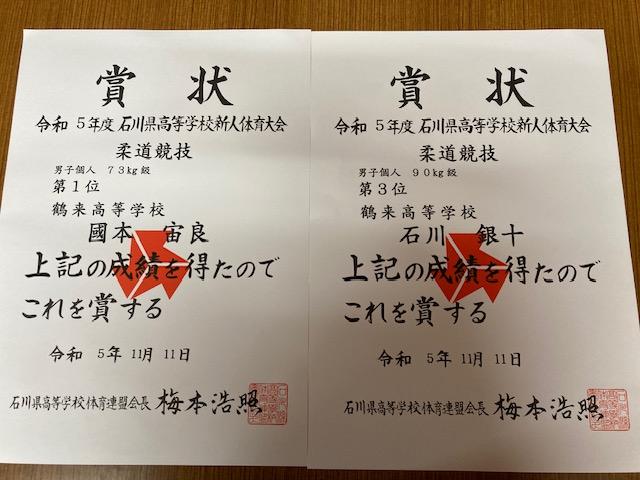 賞 状
令和 5年度 石川県高等学校新人体育大会
柔道競技
男子個人 73kg級
第1位
鶴来高等学校
國本 宙良
上記の成績を得たので
これを賞する
令和 5年 11月 11日
石川県高等学校体育連盟会長 梅本浩照
賞 状
令和 5年度 石川県高等学校新人体育大会
柔道競技
男子個人 90kg級
第3位
鶴来高等学校
石川 銀十
上記の成績を得たので
これを賞する
令和 5年 11月 11日
石川県高等学校体育連盟会長 梅本浩照